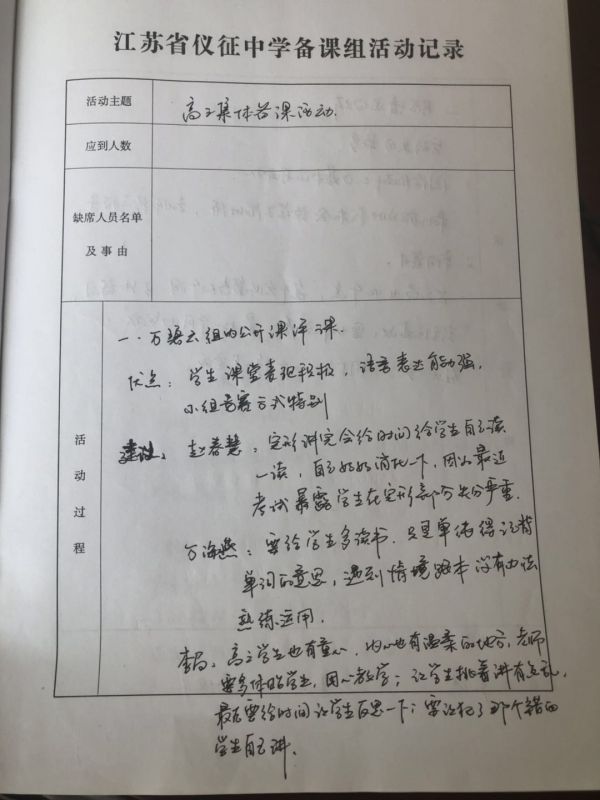 江苏省仪征中学备课组活动记录
活动主题
高三集体备课活动.
应到人数
缺席人员名单
及事由
活动过程
一.万碧云组内公开课评课.
优点：学生课堂表现积极，语言表达能力强.
小组竞赛方式特别
建议：赵春慧：完形讲完会给时间给学生自己读
一读，自己好好消化一下，因为最近
考试暴露学生在完形部分失分严重.
万海燕：要给学生多读书.只是单纯得记背
单词的意思，遇到情境根本没有办法
熟练运用.
高三学生也有童心，内心也有温柔的地方，老师
要多体贴学生，用心教学；让学生挑着讲有点乱，
最后要给时间让学生反思一下；要让犯了那个错的
学生自己讲.